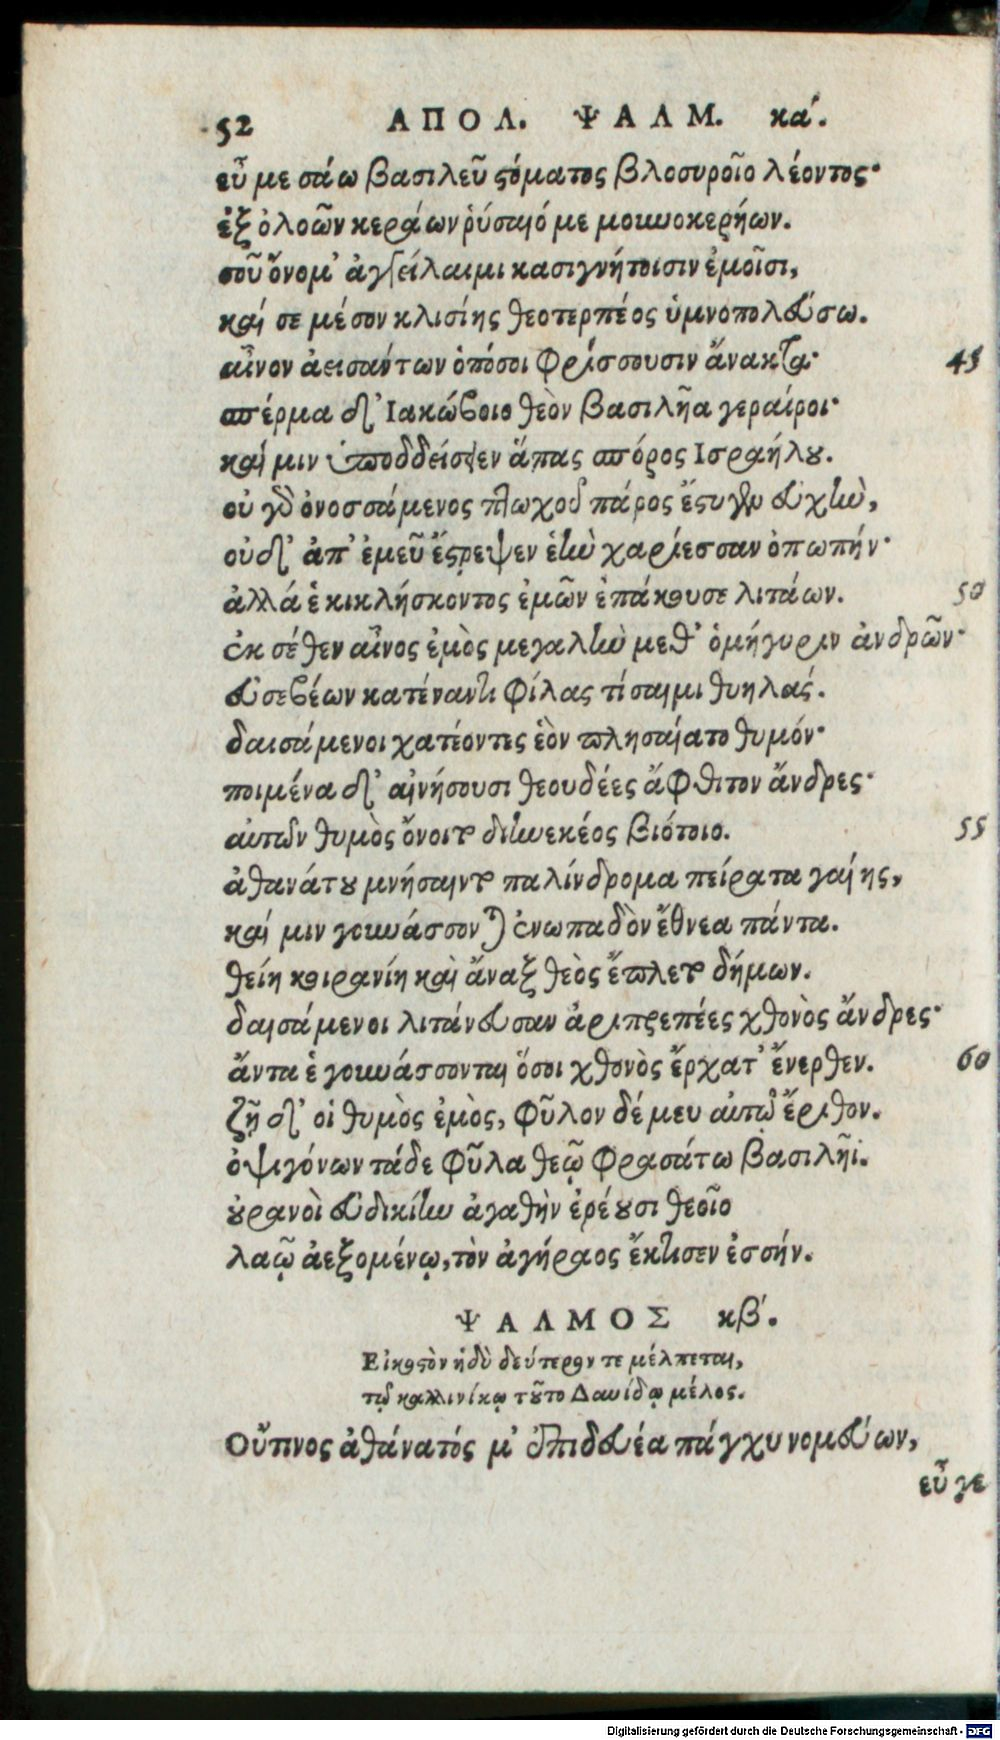 52 ΑΠΟΛ. ΨΑΛΜ. κα΄.
εὖ με σάω βασιλεῦ στόματος βλοσυροῖο λέοντος·
ἐξ ὀλοῶν κεράων ῥύσαιό με μουνοκερήων.
σοῦ ὄνομ' ἀγγείλαιμι κασιγνήτοισιν ἐμοῖσι,
καί σε μέσον κλισίης θεοτερπέος ὑμνοπολεύσω.
αἶνον ἀεισάντων ὁπόσοι φρίσσουσιν ἄνακτα· 45
σπέρμα δ' Ἰακώβοιο θεὸν βασιλῆα γεραίροι·
καί μιν ὑποδδείσειεν ἅπας σπόρος Ισραήλου.
οὐ γὰρ ὀνοσσάμενος πτωχοῦ πάρος ἔστυγεν εὐχὴν,
οὐδ' ἀπ' ἐμεῦ ἔστρεψεν ἑὴν χαρίεσσαν ὀπωπήν·
ἀλλά ἑ κικλήσκοντος ἐμῶν ἐπάκουσε λιτάων. 50
ἐκ σέθεν αἶνος ἐμὸς μεγάλην μεθ' ὁμήγυριν ἀνδρῶν·
εὐσεβέων κατέναντι φίλας τίσαιμι θυηλάς.
δαισάμενοι χατέοντες ἑὸν πλησαίατο θυμόν·
ποιμένα δ' αἰνήσουσι θεουδέες ἄφθιτον ἄνδρες·
αὐτῶν θυμὸς ὄνοιτο διηνεκέος βιότοιο. 55
ἀθανάτου μνήσαιντο παλίνδρομα πείρατα γαίης,
καί μιν γουνάσσονται ἐνωπαδὸν ἔθνεα πάντα.
θείη κοιρανίη καὶ ἄναξ θεὸς ἔπλετο δήμων.
δαισάμενοι λιτάνευσαν ἀριπρεπέες χθονὸς ἄνδρες·
ἄντα ἑ γουνάσσονται ὅσοι χθονὸς ἔρχατ' ἔνερθεν. 60
ζῇ δ' οἱ θυμὸς ἐμὸς, φῦλον δέ μευ αὐτῷ ἔριθον.
ὀψιγόνων τάδε φῦλα θεῷ φρασάτω βασιλῆϊ.
οὐρανοὶ εὐδικίην ἀγαθὴν ἐρέουσι θεοῖο
λαῷ ἀεξομένῳ, τὸν ἀγήραος ἔκτισεν ἐσσήν.
ΨΑΛΜΟΣ κβ΄.
Εἰκοστὸν ἡδὺ δεύτερόν τε μέλπεται,
τῷ καλλινίκῳ τοῦτο Δαυίδῳ μέλος.
Οὕτινος ἀθάνατός μ' ἐπιδευέα πάγχυ νομεύων,
εὖ γε
Digitalisierung gefördert durch die Deutsche Forschungsgemeinschaft - DFG